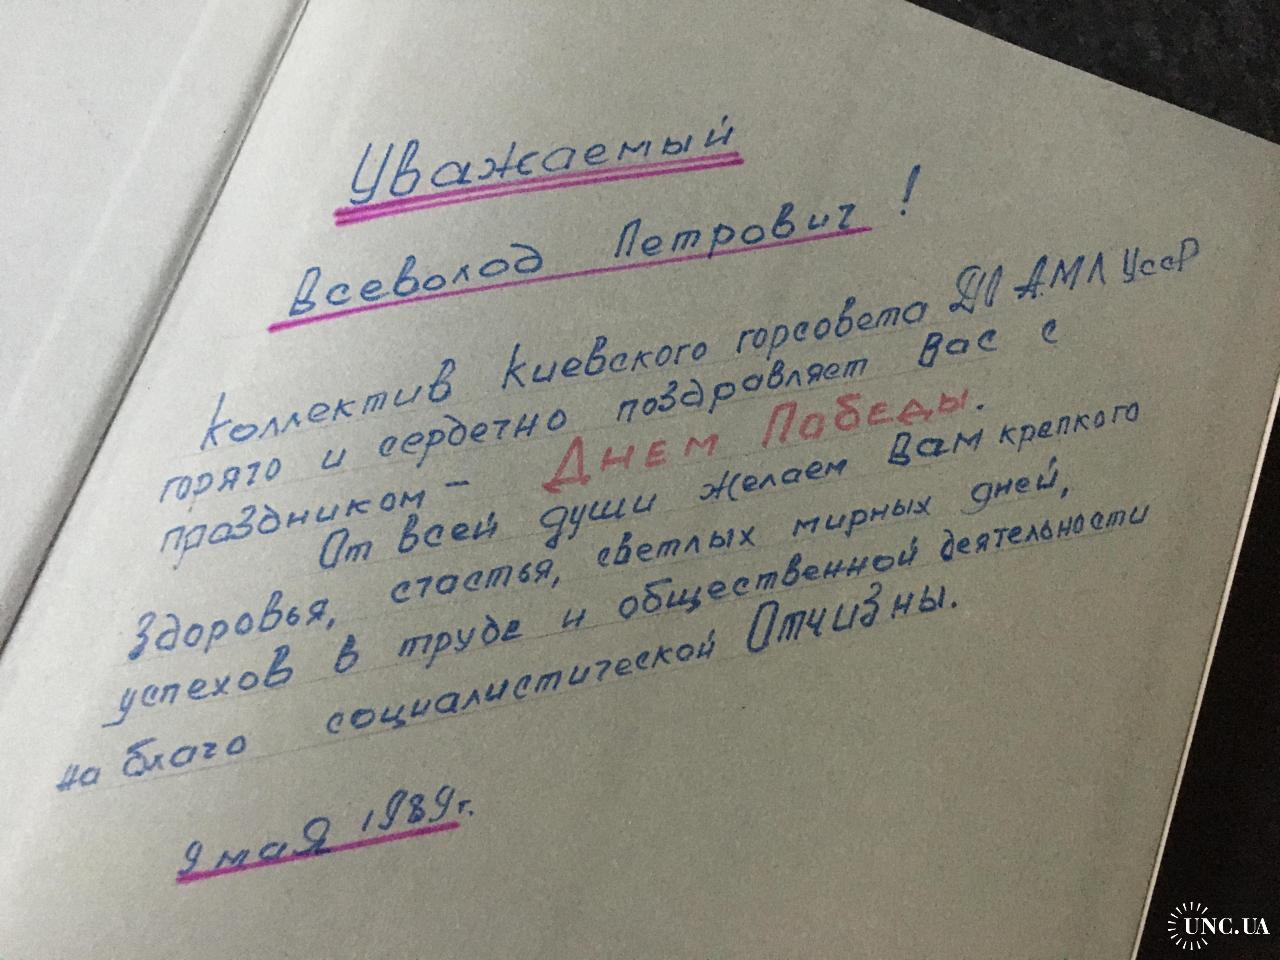 Уважаемый
Всеволод Петрович!
Коллектив Киевского горсовета АМЛ УССР
горячо и сердечно поздравляет Вас с
праздником - Днем Победы.
От всей души желаем Вам крепкого
здоровья, счастья, светлых мирных дней,
успехов в труде и общественной деятельности
на благо социалистической Отчизны.
9 мая 1989г.
UNC.UA